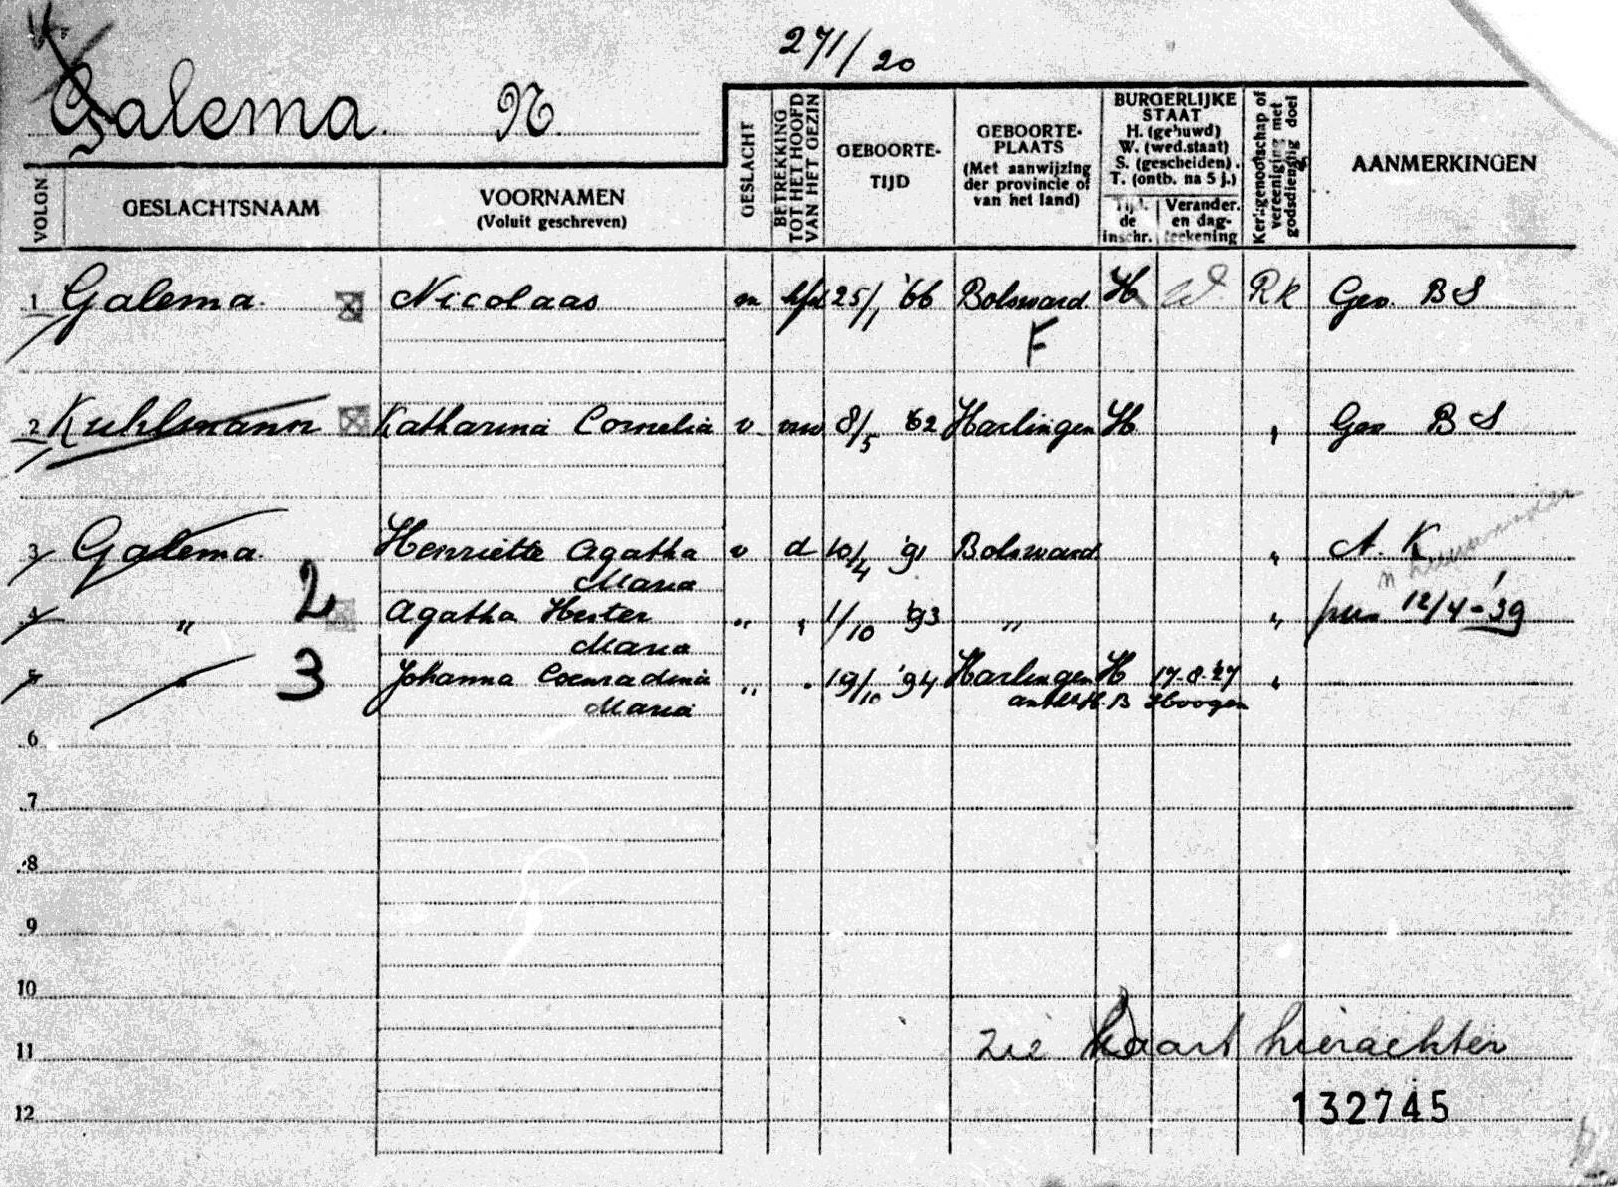 271/20
Galema N.
VOLGN. GESLACHTSNAAM VOORNAMEN (Voluit geschreven) GESLACHT BETREKKING TOT HET HOOFD VAN HET GEZIN GEBOORTE-TIJD GEBOORTE-PLAATS (Met aanwijzing der provincie of van het land) BURGERLIJKE STAAT H. (gehuwd) W. (wed.staat) S. (gescheiden). T. (ontb. na 5 j.) Tijd. de inschr. Verander. en dag-teekening Kerkgenootschap of vereeniging met godsdienstig doel AANMERKINGEN
1 Galema Nicolaas m hfd 25/1 '66 Bolsward H W RK Ges. B S
F
2 Kuhlmann Katharina Cornelia v vrw 8/5 '62 Harlingen H " Ges B S
3 Galema Henriette Agatha v d 10/4 '91 Bolsward " A. K
Maria
4 " 2 Agatha Hester " " 1/10 '93 " " 12/4-'39
Maria
5 " 3 Johanna Coenradina " " 19/10 '94 Harlingen H 17-8-27 "
Maria H. B Hoogen
6
7
8
9
10
11 zie kaart hierachter
132745
12